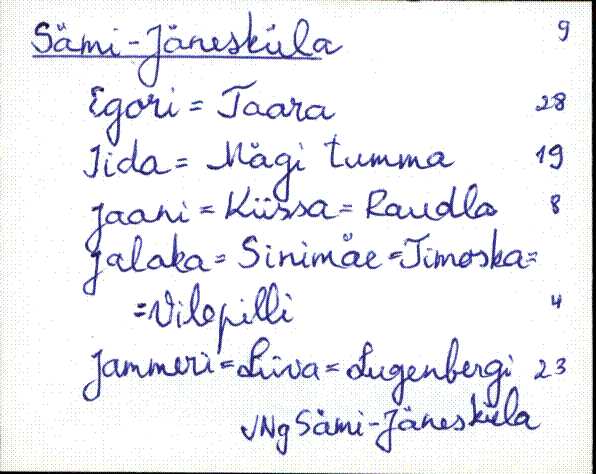 Sämi-Jänesküla 9
Egori = Taara 28
Iida = Mägi tumma 19
Jaani = Kiissa = Raudla 8
Jalaka = Sinimäe = Timoska =
= Vilepilli 4
Jammeri = Liiva = Lugenbergi 23
VNg Sämi-Jänesküla